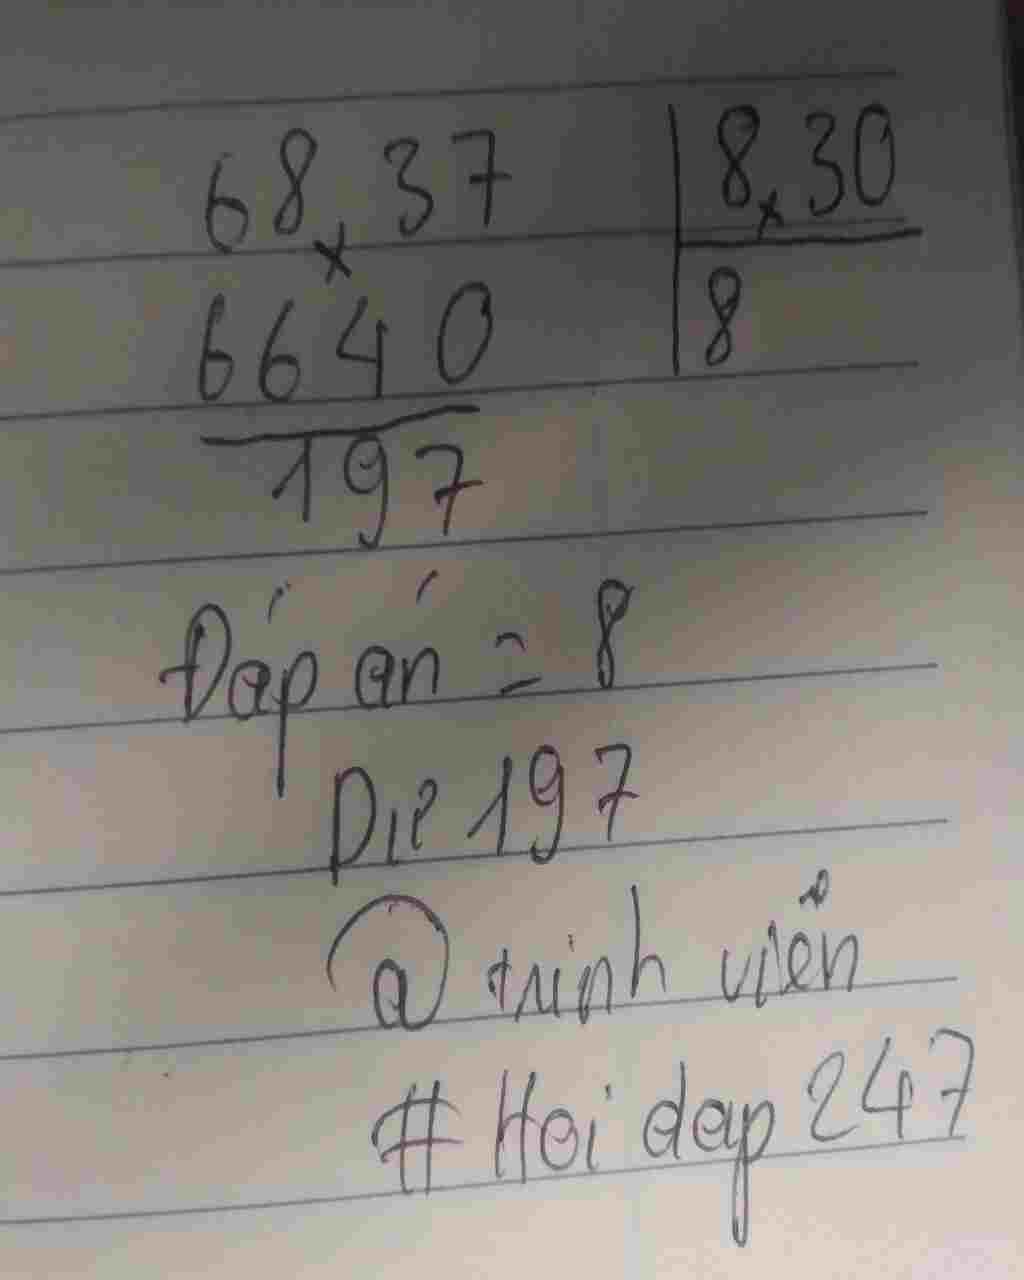 68,37 | 8,30
6640 | 8
197
Đáp án = 8
Dư 197
@ trinh viên
# Hoi dap 247